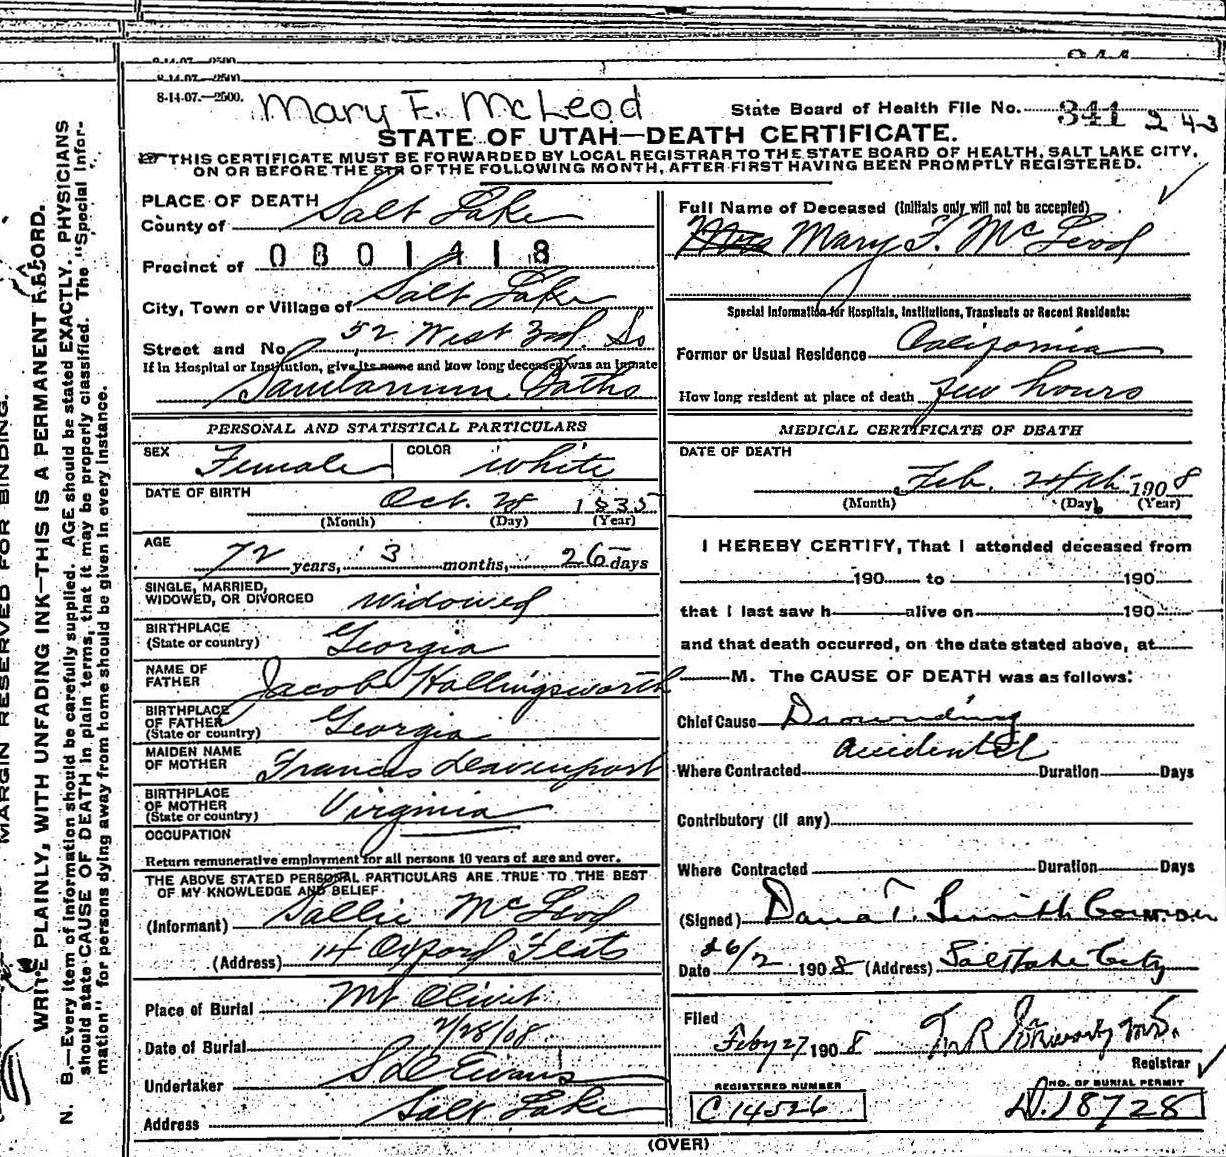 8-14-07.—2500.
8-14-07.—2500.
8-14-07.—2500.
Mary F. McLeod
State Board of Health File No. 341 243
STATE OF UTAH—DEATH CERTIFICATE.
THIS CERTIFICATE MUST BE FORWARDED BY LOCAL REGISTRAR TO THE STATE BOARD OF HEALTH, SALT LAKE CITY,
ON OR BEFORE THE 5TH OF THE FOLLOWING MONTH, AFTER FIRST HAVING BEEN PROMPTLY REGISTERED.
PLACE OF DEATH
County of Salt Lake
Precinct of 0801418
City, Town or Village of Salt Lake
Street and No. 52 West 3rd So
If in Hospital or Institution, give its name and how long deceased was an inmate
Sanitarium Baths
PERSONAL AND STATISTICAL PARTICULARS
SEX Female COLOR White
DATE OF BIRTH Oct. 28 1835
(Month) (Day) (Year)
AGE 72 years, 3 months, 26 days
SINGLE, MARRIED,
WIDOWED, OR DIVORCED Widowed
BIRTHPLACE
(State or country) Georgia
NAME OF
FATHER Jacob Hollingsworth
BIRTHPLACE
OF FATHER
(State or country) Georgia
MAIDEN NAME
OF MOTHER Francis Leavenport
BIRTHPLACE
OF MOTHER
(State or country) Virginia
OCCUPATION
Return remunerative employment for all persons 10 years of age and over.
THE ABOVE STATED PERSONAL PARTICULARS ARE TRUE TO THE BEST
OF MY KNOWLEDGE AND BELIEF
(Informant) Sallie McLeod
(Address) 14 Oxford Flats
Place of Burial Mt Olivit
Date of Burial 2/28/08
Undertaker S D Evans
Address Salt Lake
Full Name of Deceased (Initials only will not be accepted)
Mrs Mary F. McLeod
Special Information for Hospitals, Institutions, Transients or Recent Residents:
Former or Usual Residence California
How long resident at place of death few hours
MEDICAL CERTIFICATE OF DEATH
DATE OF DEATH
Feb. 24th 1908
(Month) (Day) (Year)
I HEREBY CERTIFY, That I attended deceased from
190 to 190
that I last saw h alive on 190
and that death occurred, on the date stated above, at
M. The CAUSE OF DEATH was as follows:
Chief Cause Drownding
accidental
Where Contracted Duration Days
Contributory (if any)
Where Contracted Duration Days
(Signed) Dana T. Smith M. D.
Date 26/2 1908 (Address) Salt Lake City
Filed
Feby 27 1908 M.D.
Registrar
REGISTERED NUMBER
C 14526
NO. OF BURIAL PERMIT
D.18728
(OVER)
MARGIN RESERVED FOR BINDING.
WRITE PLAINLY, WITH UNFADING INK—THIS IS A PERMANENT RECORD.
N. B.—Every item of information should be carefully supplied. AGE should be stated EXACTLY. PHYSICIANS
should state CAUSE OF DEATH in plain terms, that it may be properly classified. The "Special Infor-
mation" for persons dying away from home should be given in every instance.